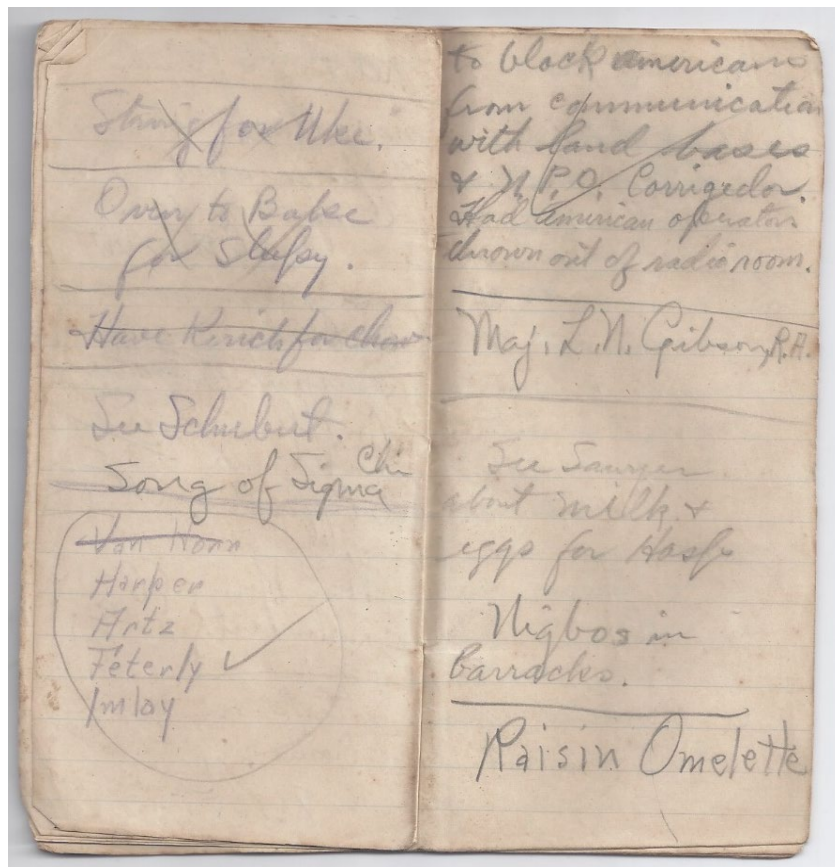 String for Uke.
Oven to Babse
for Slupsy.
Have Kinich for chow
See Schubert.
Song of Sigma Chi
Van Horn
Harper
Artz
Feterly ✓
Imlay
to block americans
from communication
with land bases
& N.P.O. Corrigedor.
Had american operators
thrown out of radio room.
Maj. L.N. Gibson, R.A.
See Sawyer
about milk &
eggs for Hosp
Nigbos in
barracks.
Raisin Omelette